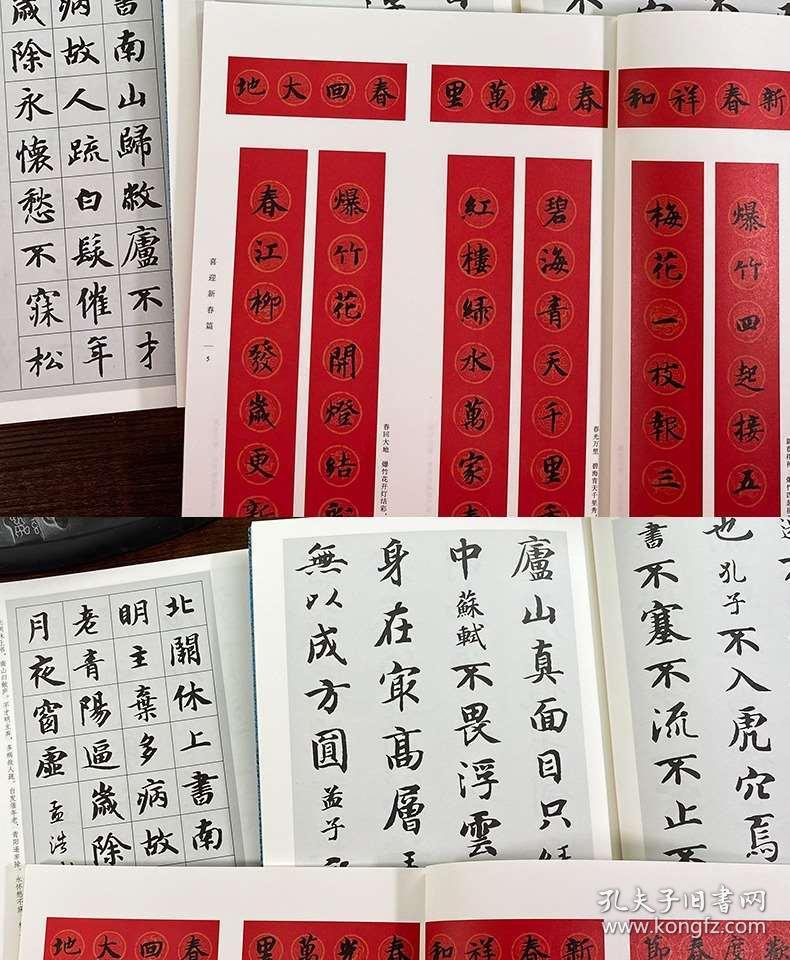 書南山歸敝廬不才
病故人疏白髮催年
歲除永懷愁不寐松
新春祥和
春光萬里
春回大地
爆竹四起接五
梅花一枝報三
碧海青天千里
紅樓綠水萬家
爆竹花開燈結彩
春江柳發歲更新
春光万里 碧海青天千里秀,
春回大地 爆竹花开灯结彩,
喜迎新春篇 5
也 孔子 不入虎穴焉
書 不塞不流不止不
廬山真面目只
中 蘇軾 不畏浮雲
身在最高層
無以成方圓 孟子
北闕休上書南
明主棄多病故
老青陽逼歲除
月夜窗虛 孟浩
歡度春節
新春祥和
春光萬里
春回大地
孔夫子旧书网
www.kongfz.com